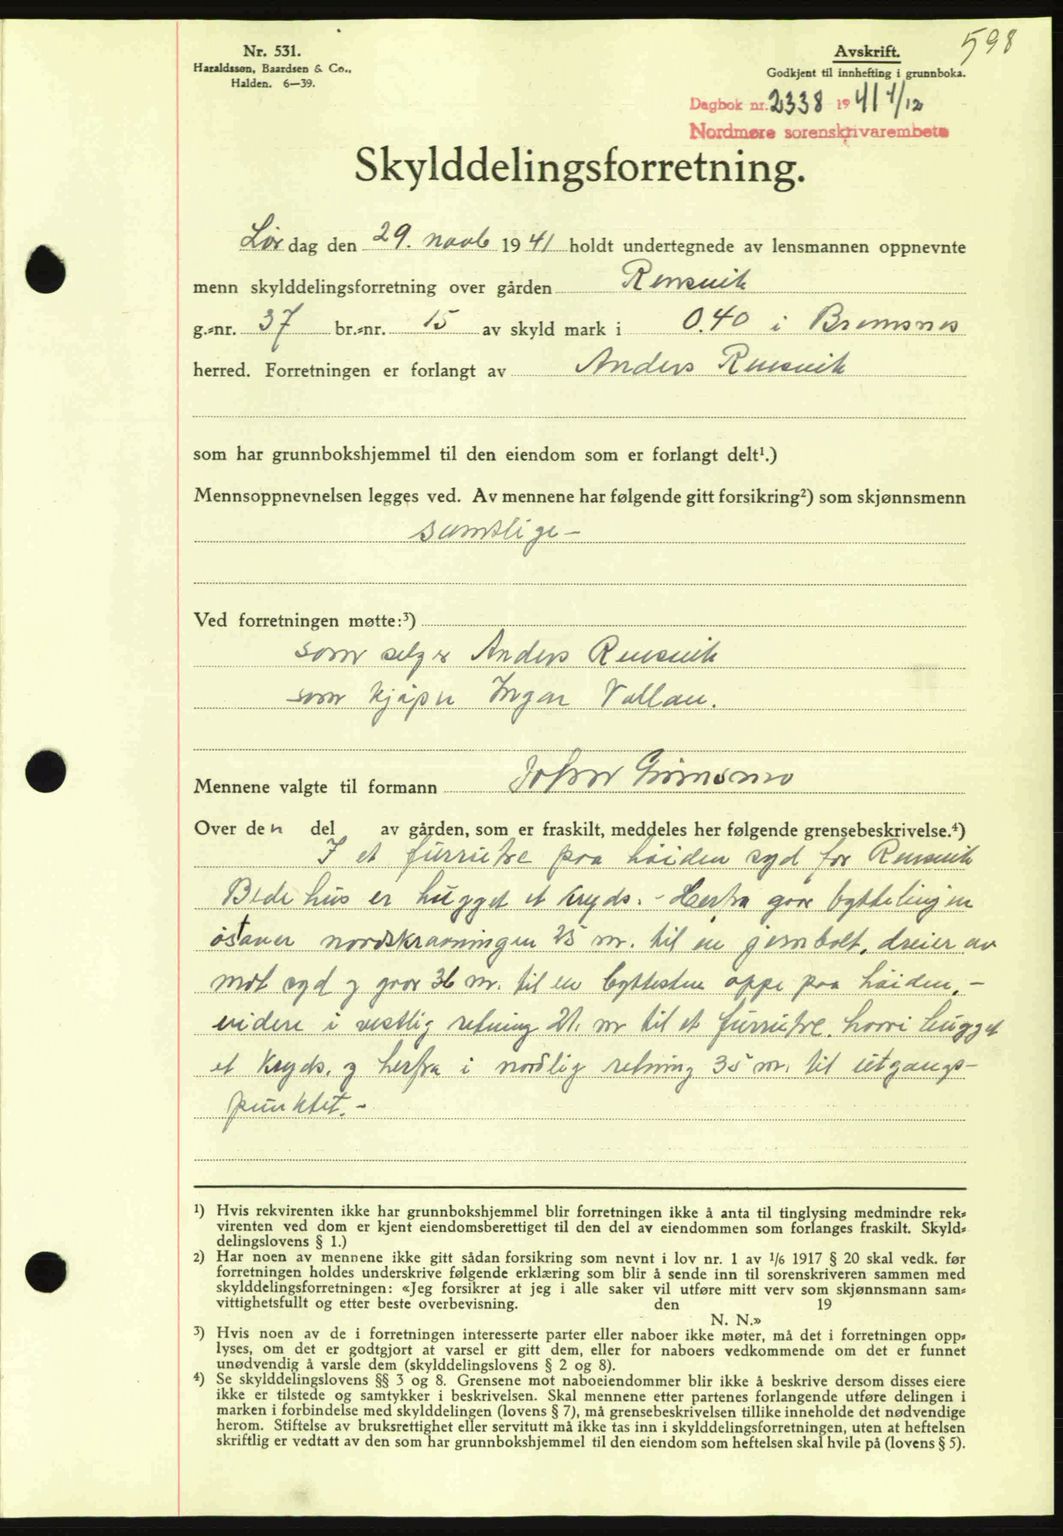 598
Nr. 531.
Haraldssøn, Baardsen & Co.,
Halden. 6—39.
Avskrift.
Godkjent til innhefting i grunnboka.
Dagbok nr. 2338 1941 4/12
Nordmøre sorenskrivarembete
Skylddelingsforretning.
Lør dag den 29. novb 1941 holdt undertegnede av lensmannen oppnevnte
menn skylddelingsforretning over gården Rensvik
g.=nr. 37 br.=nr. 15 av skyld mark i 0.40 i Bremsnes
herred. Forretningen er forlangt av Anders Rensvik
som har grunnbokshjemmel til den eiendom som er forlangt delt¹.)
Mennsoppnevnelsen legges ved. Av mennene har følgende gitt forsikring²) som skjønnsmenn
samtlige -
Ved forretningen møtte:³)
som selger Anders Rensvik
som kjøper Ingar Vollan.
Mennene valgte til formann Johan Grimsmo
Over den del av gården, som er fraskilt, meddeles her følgende grensebeskrivelse.⁴)
I et furrutre paa høiden syd for Rensvik
Bedehus er hugget et kryds. - Herfra gaar byttelinjen
østover nordskraaningen 25 m. til en jernbolt, dreier av
mot syd og gaar 36 m. til en byttesten oppe paa høiden. -
videre i vestlig retning 21. m til et furrutre, hvori hugget
et kryds, og herfra i nordlig retning 35 m. til utgangs-
punktet. -
¹) Hvis rekvirenten ikke har grunnbokshjemmel blir forretningen ikke å anta til tinglysing medmindre rek=
virenten ved dom er kjent eiendomsberettiget til den del av eiendommen som forlanges fraskilt. Skyld=
delingslovens § 1.)
²) Har noen av mennene ikke gitt sådan forsikring som nevnt i lov nr. 1 av 1/6 1917 § 20 skal vedk. før
forretningen holdes underskrive følgende erklæring som blir å sende inn til sorenskriveren sammen med
skylddelingsforretningen: «Jeg forsikrer at jeg i alle saker vil utføre mitt verv som skjønnsmann sam=
vittighetsfullt og etter beste overbevisning. den 19
N. N.»
³) Hvis noen av de i forretningen interesserte parter eller naboer ikke møter, må det i forretningen opp=
lyses, om det er godtgjort at varsel er gitt dem, eller for naboers vedkommende om det er funnet
unødvendig å varsle dem (skylddelingslovens § 2 og 8).
⁴) Se skylddelingslovens §§ 3 og 8. Grensene mot naboeiendommer blir ikke å beskrive dersom disses eiere
ikke er tilstede og samtykker i beskrivelsen. Skal mennene etter partenes forlangende utføre delingen i
marken i forbindelse med skylddelingen (lovens § 7), må grensebeskrivelsen tillike inneholde det nødvendige
herom. Stiftelse av bruksrettighet eller servitutt må ikke tas inn i skylddelingsforretningen, uten at heftelsen
skriftlig er vedtatt av den som har grunnbokshjemmel til den eiendom som heftelsen skal hvile på (lovens § 5).